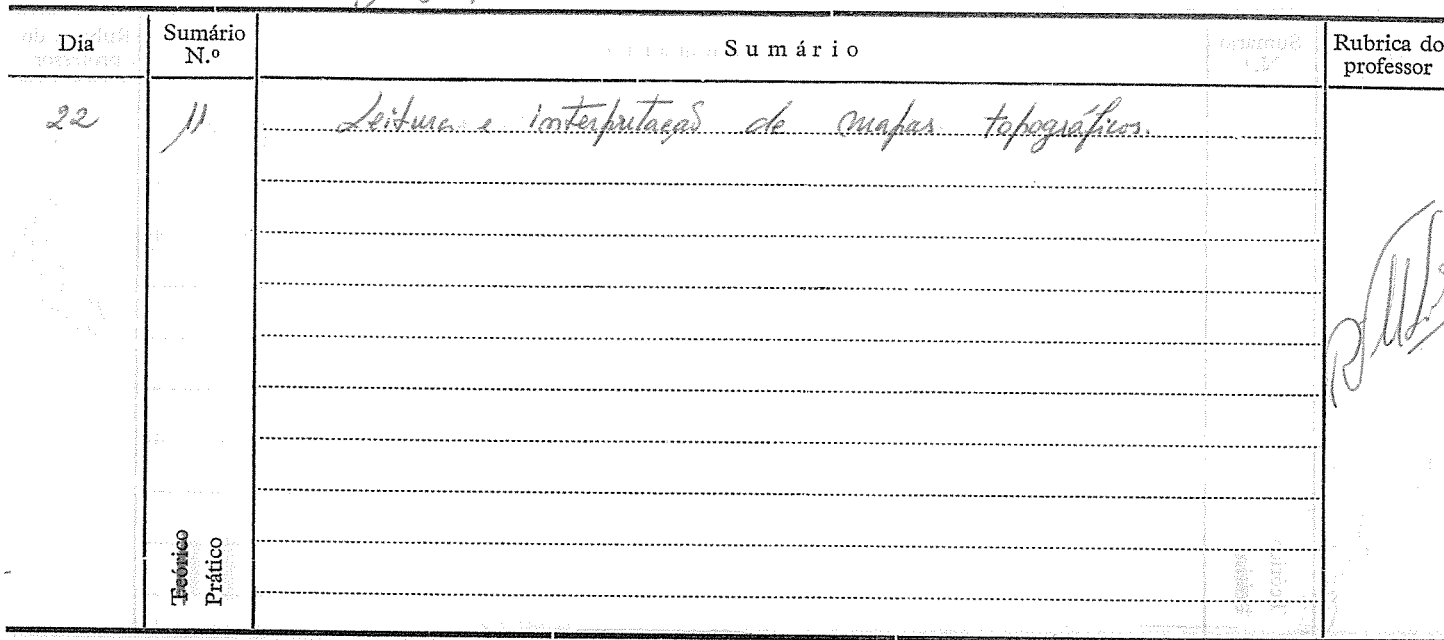 Dia
Sumário N.º
Sumário
Rubrica do professor
22
11
Leitura e interpretação de mapas topográficos.
Teórico
Prático